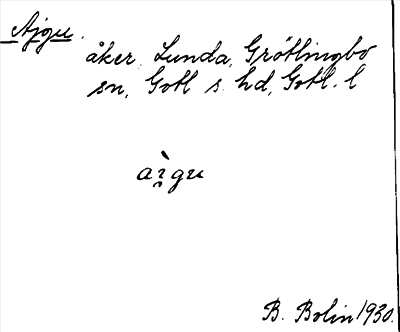 Ajgu.
åker, Lunda, Grötlingbo
sn, Gotl s. hd, Gotl. l
aì̯gu
B. Bolin 1930.